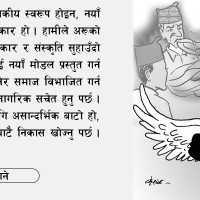 कीय स्वरूप होइन, नयाँ
कार हो । हामीले अरूको
कार र संस्कृति सुहाउँदो
ई नयाँ मोडल प्रस्तुत गर्न
नेर समाज विभाजित गर्न
नागरिक सचेत हुनु पर्छ ।
गि असान्दर्भिक बाटो हो,
बाटै निकास खोज्नु पर्छ ।
ाने